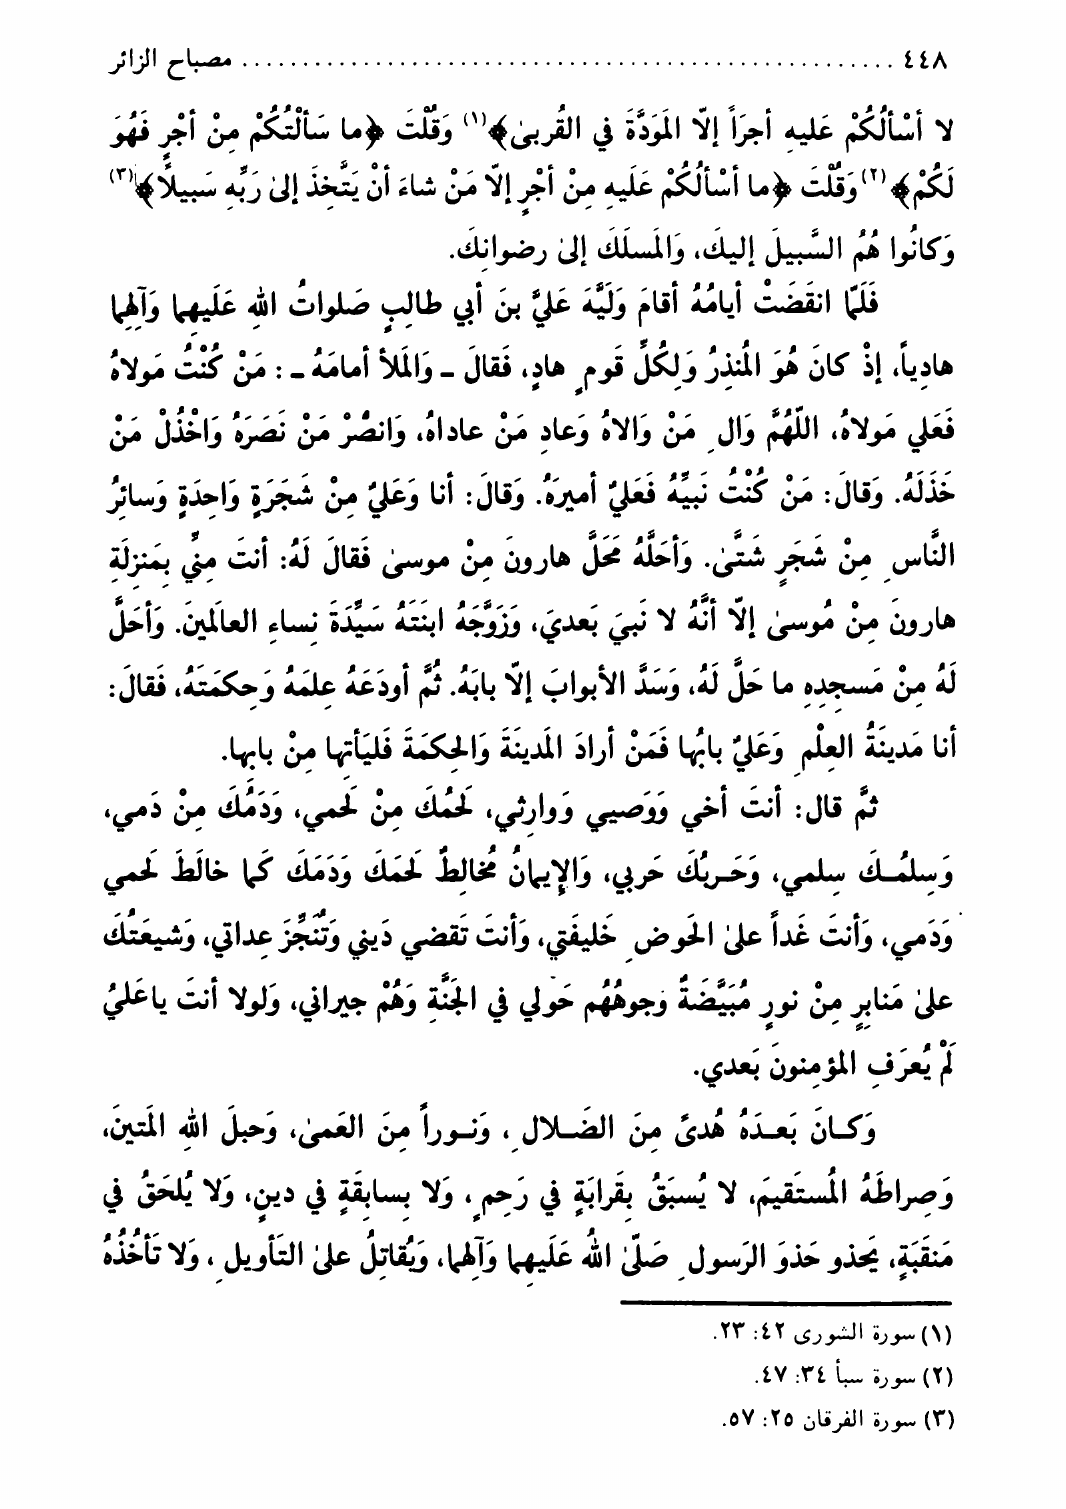 ٤٤٨ ........................................................ مصباح الزائر
لا أسْألُكُمْ عَليهِ أجرَاً إلّا المَوَدَّةَ في القُربىٰ﴾(١) وَقُلْتَ ﴿ما سَألْتُكُمْ مِنْ أجْرٍ فَهُوَ
لَكُمْ﴾(٢) وَقُلْتَ ﴿ما أسْألُكُمْ عَلَيهِ مِنْ أجْرٍ إلّا مَنْ شاءَ أنْ يَتَّخِذَ إلىٰ رَبِّهِ سَبيلاً﴾(٣)
وَكانُوا هُمُ السَّبيلَ إليكَ، وَالمَسلَكَ إلىٰ رضوانِكَ.
فَلَمّا انقَضَتْ أيامُهُ أقامَ وَلَيَّهُ عَليَّ بنَ أبي طالِبٍ صَلواتُ اللهِ عَلَيهِما وَآلِهِما
هادِياً، إذْ كانَ هُوَ المُنذِرُ وَلِكُلِّ قَومٍ هادٍ، فَقالَ ـ وَالمَلأ أمامَهُ ـ : مَنْ كُنْتُ مَولاهُ
فَعَلي مَولاهُ، اللّهُمَّ وَالِ مَنْ وَالاهُ وَعادِ مَنْ عاداهُ، وَانصُرْ مَنْ نَصَرَهُ وَاخْذُلْ مَنْ
خَذَلَهُ. وَقالَ: مَنْ كُنْتُ نَبيَّهُ فَعَليٌ أميرَهُ. وَقالَ: أنا وَعَليٌ مِنْ شَجَرَةٍ وَاحِدَةٍ وَسائِرُ
النَّاسِ مِنْ شَجَرٍ شَتَّىٰ. وَأحَلَّهُ مَحَلَّ هارونَ مِنْ موسىٰ فَقالَ لَهُ: أنتَ مِنِّي بِمَنزِلَةِ
هارونَ مِنْ مُوسىٰ إلّا أنَّهُ لا نَبيَ بَعديَ، وَزَوَّجَهُ ابنَتَهُ سَيِّدَةَ نِساءِ العالَمينَ. وَأحَلَّ
لَهُ مِنْ مَسجِدِهِ ما حَلَّ لَهُ، وَسَدَّ الأبوابَ إلّا بابَهُ. ثُمَّ أودَعَهُ عِلمَهُ وَحِكمَتَهُ، فَقالَ:
أنا مَدينَةُ العِلْمِ وَعَليٌ بابُها فَمَنْ أرادَ المَدينَةَ وَالحِكمَةَ فَليَأتِها مِنْ بابِها.
ثمَّ قال: أنتَ أخي وَوَصيي وَوارِثي، لَحمُكَ مِنْ لَحمي، وَدَمُكَ مِنْ دَمي،
وَسِلمُـكَ سِلمي، وَحَـربُكَ حَربي، وَالإيمانُ مُخالِطٌ لَحمَكَ وَدَمَكَ كَما خالَطَ لَحمي
وَدَمي، وَأنتَ غَداً علىٰ الحَوضِ خَليفَتي، وَأنتَ تَقضي دَيني وَتُنَجِّزَ عِداتي، وَشيعَتُكَ
علىٰ مَنابِرٍ مِنْ نورٍ مُبَيَّضَةٌ وَجوهُهُم حَولي في الجَنَّةِ وَهُمْ جيراني، وَلولا أنتَ ياعَليُ
لَمْ يُعرَفِ المؤمِنونَ بَعدي.
وَكـانَ بَعـدَهُ هُدىً مِنَ الضَـلالِ، وَنـوراً مِنَ العَمىٰ، وَحبلَ اللهِ المَتينَ،
وَصِراطَهُ المُستَقيمَ، لا يُسبَقُ بِقَرابَةٍ في رَحِمٍ، وَلا بِسابِقَةٍ في دينٍ، وَلا يُلحَقُ في
مَنقَبَةٍ، يَحذو حَذوَ الرَسولِ صَلّىٰ اللهُ عَلَيهِما وَآلِهما، وَيُقاتِلُ علىٰ التَأويلِ، وَلا تَأخُذُهُ
(١) سورة الشورى ٤٢: ٢٣.
(٢) سورة سبأ ٣٤: ٤٧.
(٣) سورة الفرقان ٢٥: ٥٧.